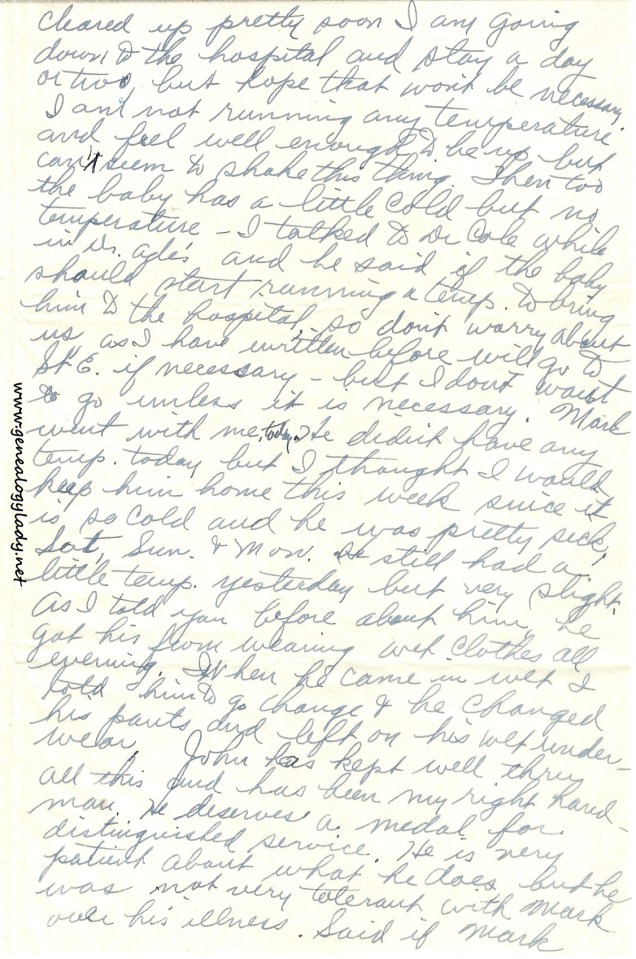 cleared up pretty soon I am going
down to the hospital and stay a day
or two, but hope that won't be necessary.
I am not running any temperature
and feel well enough to be up but
can't seem to shake this thing. Then too
the baby has a little cold but no
temperature – I talked to Dr Cole while
in Dr. Ade's and he said if the baby
should start running a temp. to bring
him to the hospital, so don't worry about
us as I have written before will go to
St E. if necessary – but I don't want
to go unless it is necessary. Mark
went with me today. He didn't have any
temp. today but I thought I would
keep him home this week since it
is so cold and he was pretty sick,
Sat, Sun. & Mon. He still had a
little temp. yesterday but very slight.
As I told you before about him, he
got his from wearing wet clothes all
evening. When he came in wet I
told him to go change & he changed
his pants and left on his wet under-
wear. John has kept well thru
all this and has been my right hand-
man. He deserves a medal for
distinguished service. He is very
patient about what he does, but he
was not very tolerant with Mark
over his illness. Said if Mark
www.genealogylady.net